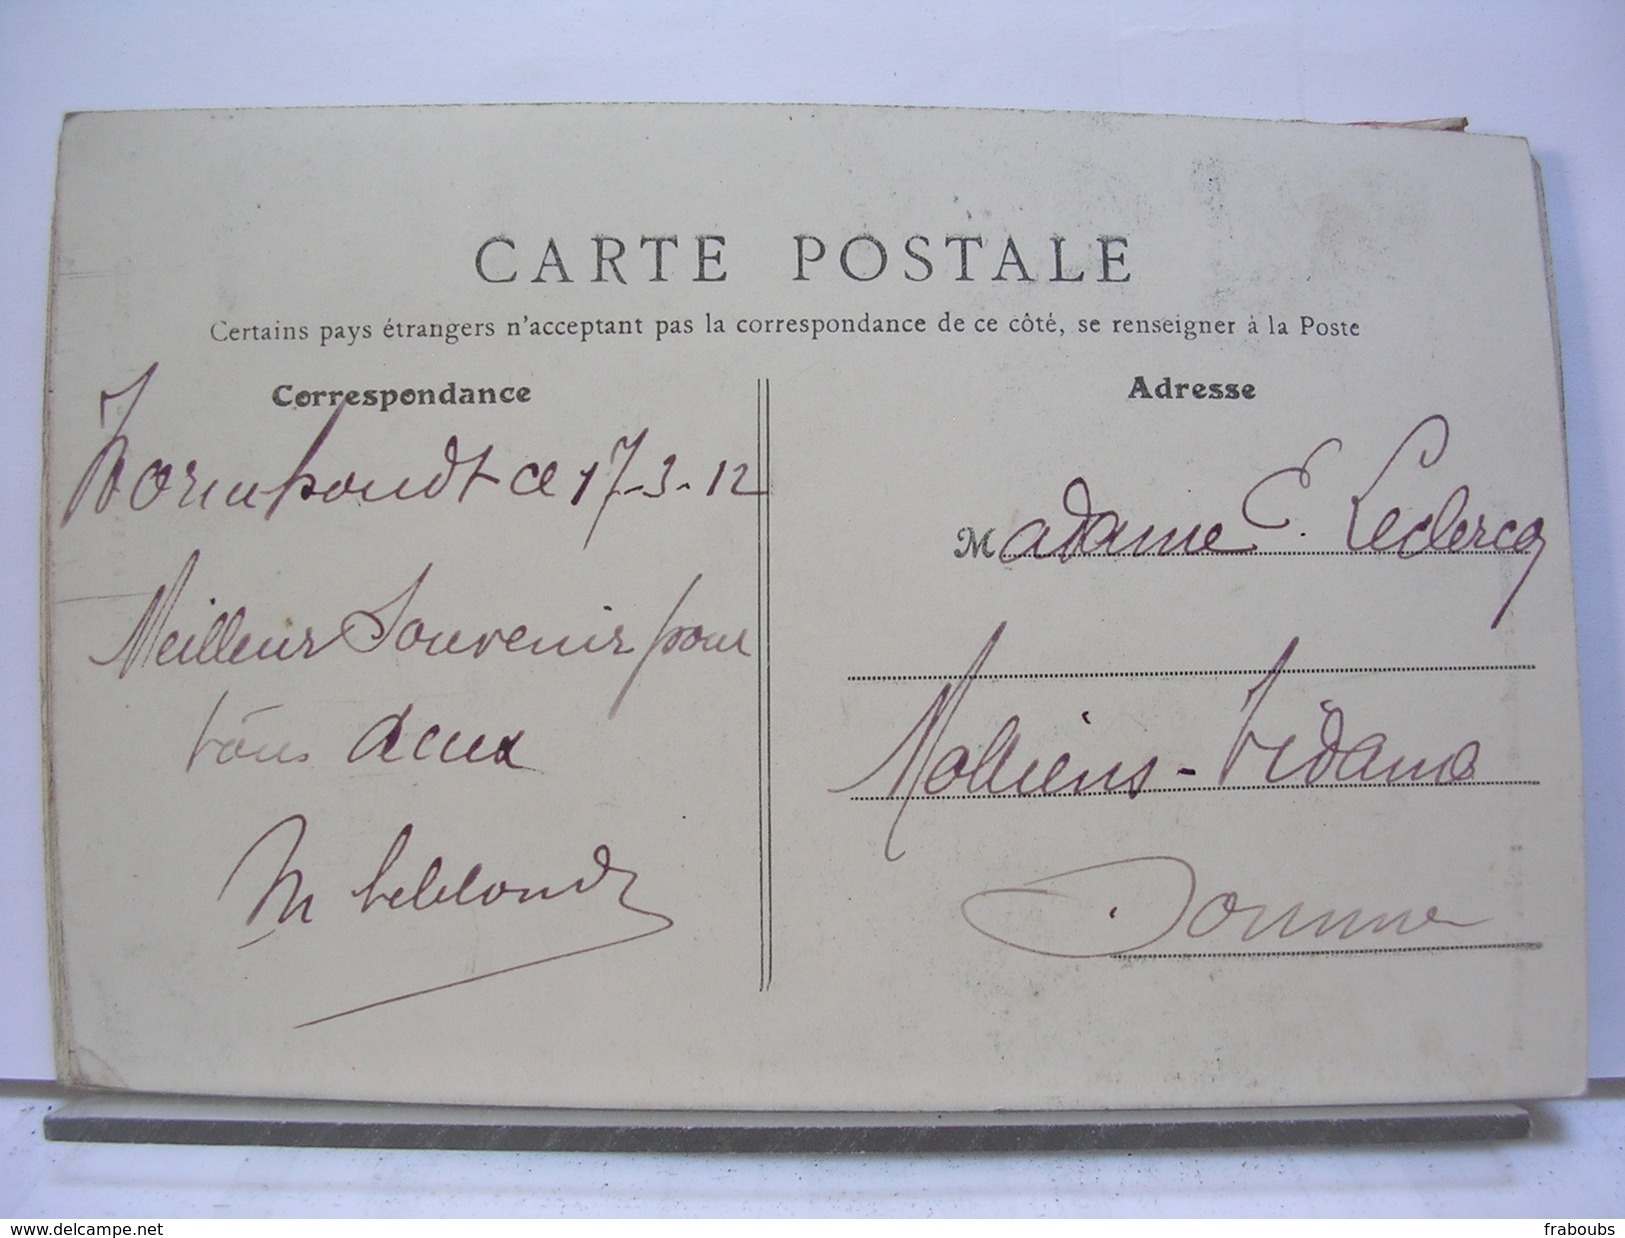 CARTE POSTALE
Certains pays étrangers n'acceptant pas la correspondance de ce côté, se renseigner à la Poste
Correspondance
ce 17-3-12
Meilleur Souvenir pour
tous deux
M Leblond
Adresse
Madame E. Leclercq
Molliens-Vidame
Somme
www.delcampe.net
fraboubs